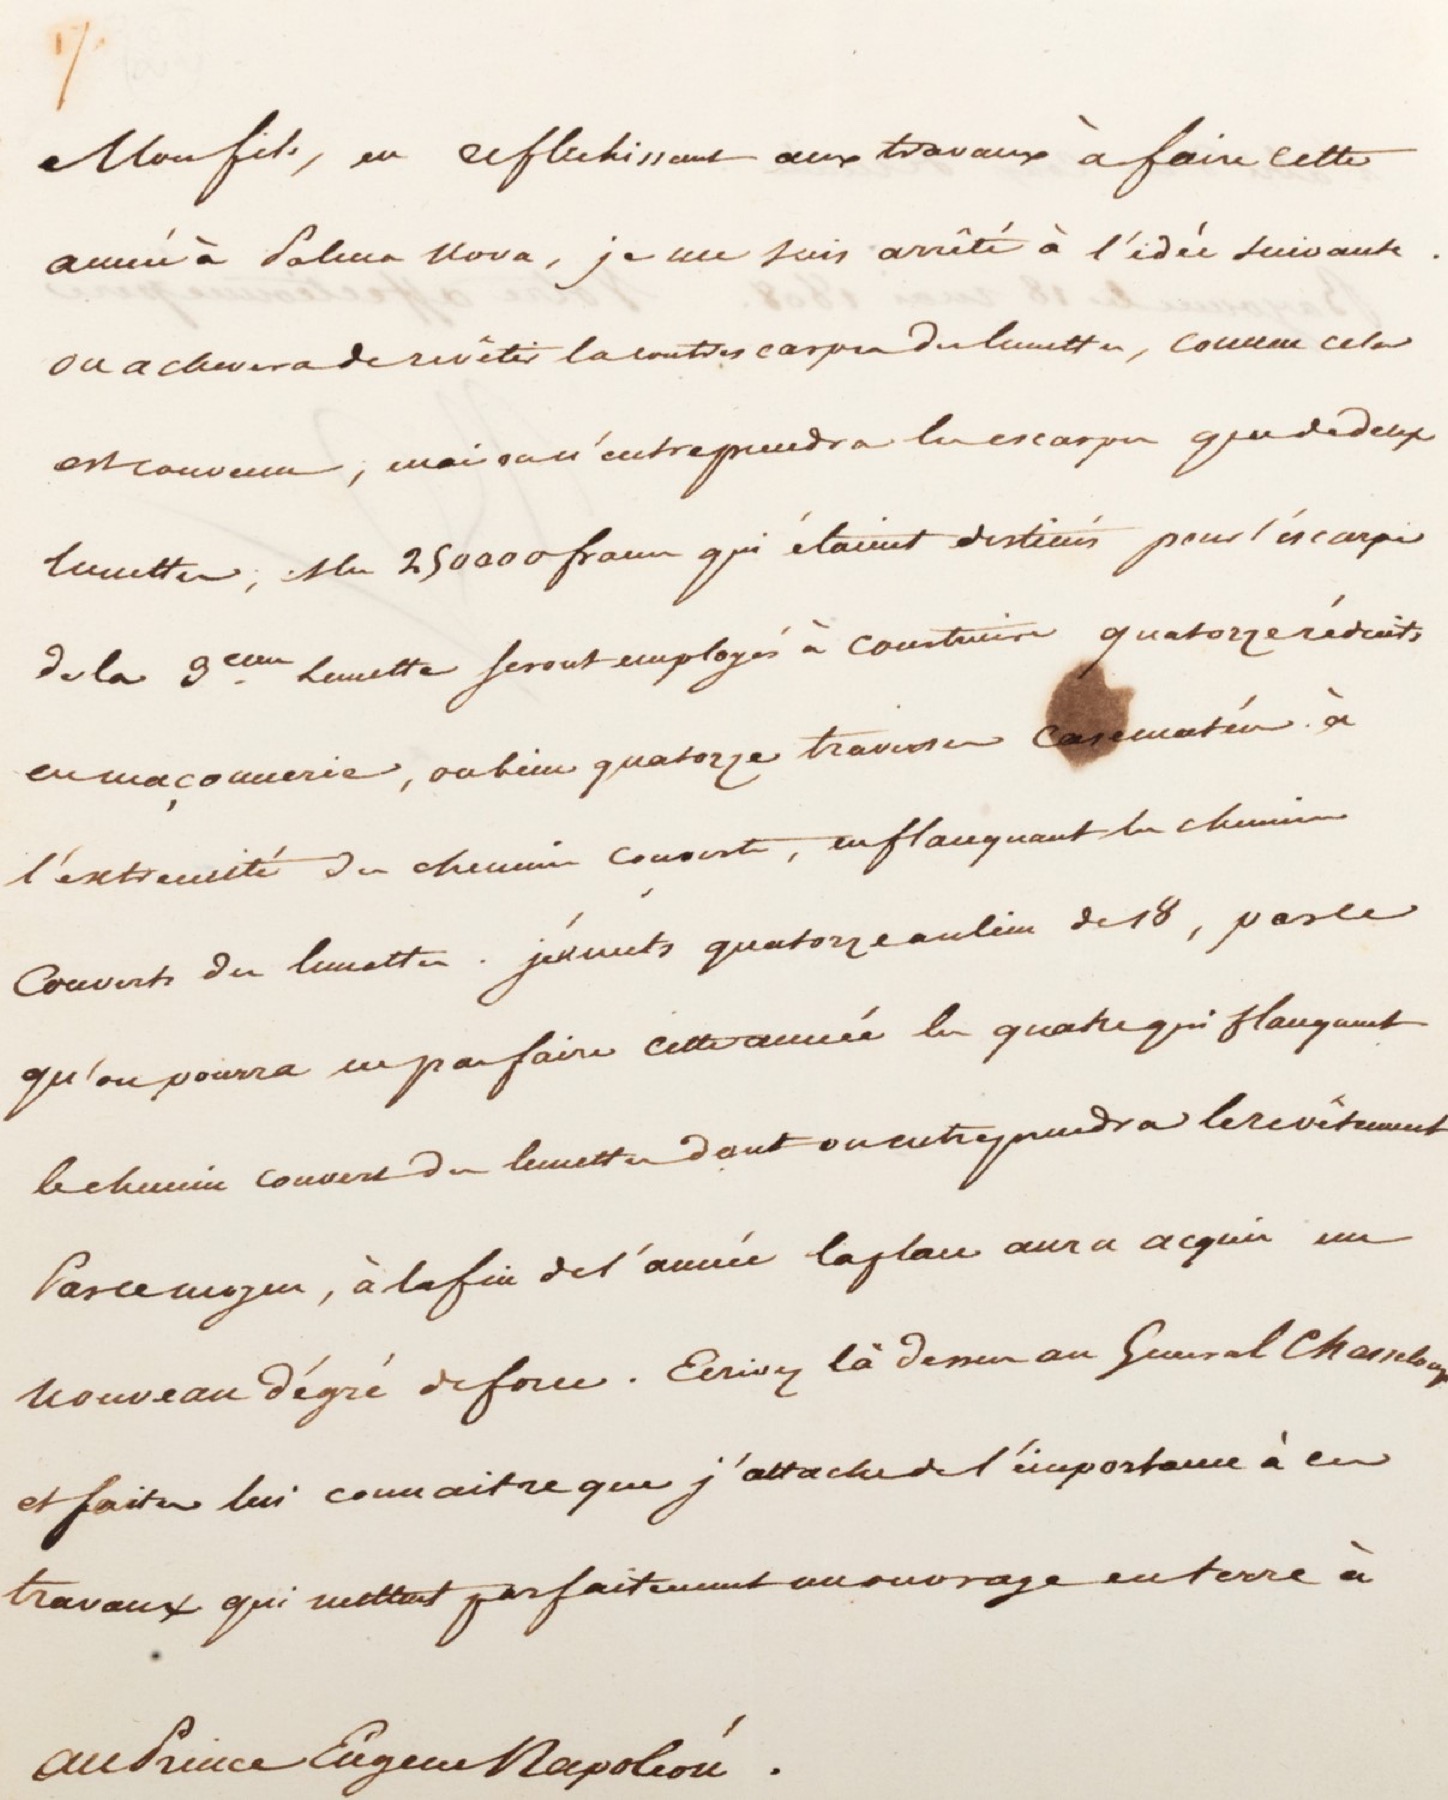 17.
Mon fils, en reflechissant aux travaux à faire cette
année à Palma Nova, je me suis arrêté à l'idée suivante.
on achevera de revêtir la contrescarpe des lunettes, comme cela
est convenu, mais on n'entreprendra les escarpes que de deux
lunettes, et les 250000 francs qui étaient destinés pour l'éscarpe
de la 3eme lunette seront employés à construire quatorze réduits
en maçonnerie, ou bien quatorze traverses casematées à
l'éxtremité des chemins couverts, en flanquant les chemins
Couverts des lunettes. j'émets quatorze au lieu de 18, parce
qu'on pourra ne pas faire cette année les quatre qui flanquent
le chemin couvert des lunettes dont on entreprendra le revêtement
Par ce moyen, à la fin de l'année la place aura acquis un
nouveau dégré de force. Ecrivez là dessus au Général Chasseloup
et faites lui connaitre que j'attache de l'importance à ces
travaux qui mettent parfaitement un ouvrage en terre à
au Prince Eugene Napoléon.
Bayonne le 18 mai 1808.
Votre affectionné père